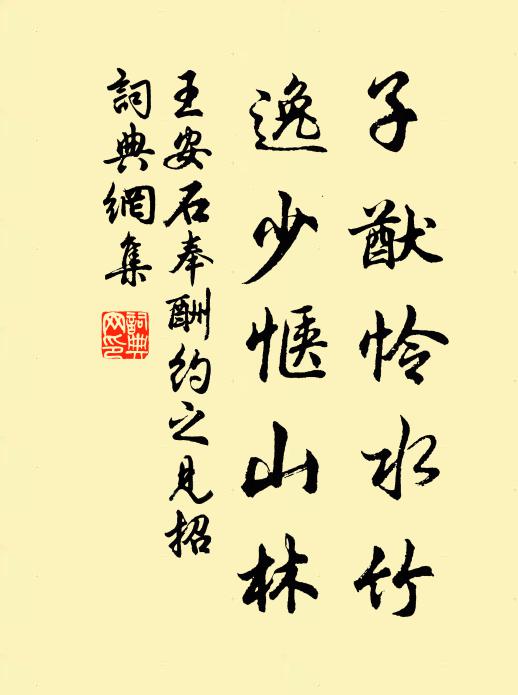 子猷怜水竹
逸少惬山林
王安石奉酬約之見招
詞典網集
詞典网印